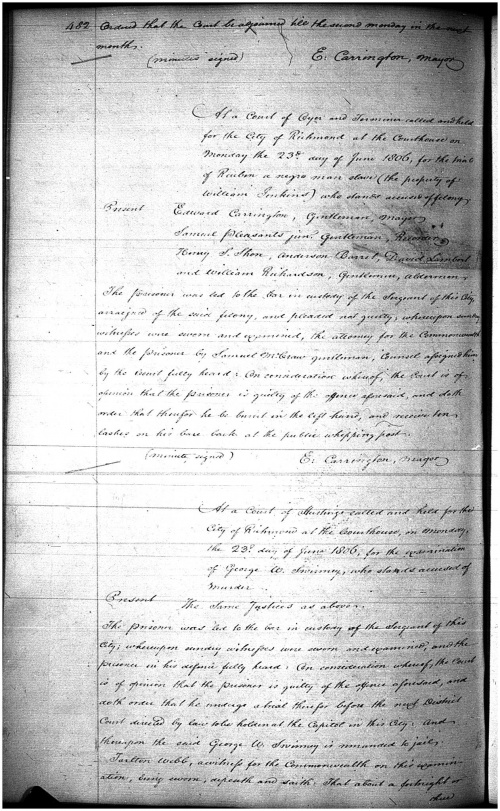 482 Ordered that the Court be adjourned till the second monday in the next
month.
(minutes signed) E. Carrington, Mayor
At a Court of Oyer and Terminer called and held
for the City of Richmond at the Courthouse on
Monday the 23d day of June 1806, for the trial
of Reuben a negro man slave (the property of
William Jenkins) who stands accused of felony
Present Edward Carrington, Gentleman, Mayor
Samuel Pleasants junr. Gentleman, Recorder
Henry S. Shore, Anderson Barret, David Lambert
and William Richardson, Gentlemen, Aldermen.
The Prisoner was led to the bar in custody of the Sergeant of this City,
arraigned of the said felony, and pleaded not guilty; whereupon sundry
witnesses were sworn and examined, the attorney for the Commonwealth
and the prisoner by Samuel McCraw gentleman, Counsel assigned him
by the Court fully heard: On consideration whereof, the Court is of
opinion that the Prisoner is guilty of the offence aforesaid, and doth
order that therefor he be burnt in the left hand, and receive ten
lashes on his bare back at the public whipping post.
(minutes signed) E. Carrington, mayor
At a Court of Hustings called and held for the
City of Richmond at the Courthouse, on monday,
the 23d day of June 1806, for the examination
of George W. Swinney, who stands accused of
murder.
Present The Same Justices as above.
The prisoner was led to the bar in custody of the Sergeant of this
City; whereupon sundry witnesses were sworn and examined, and the
prisoner in his defence fully heard: On consideration whereof, the Court
is of opinion that the Prisoner is guilty of the offence aforesaid, and
doth order that he undergo a trial therefor before the next District
Court directed by law to be holden at the Capitol in this City: And
thereupon the said George W. Swinney is remanded to jail.
Tarlton Webb, a witness for the Commonwealth on this examin-
ation, being sworn, deposeth and saith: That about a fortnight or
three